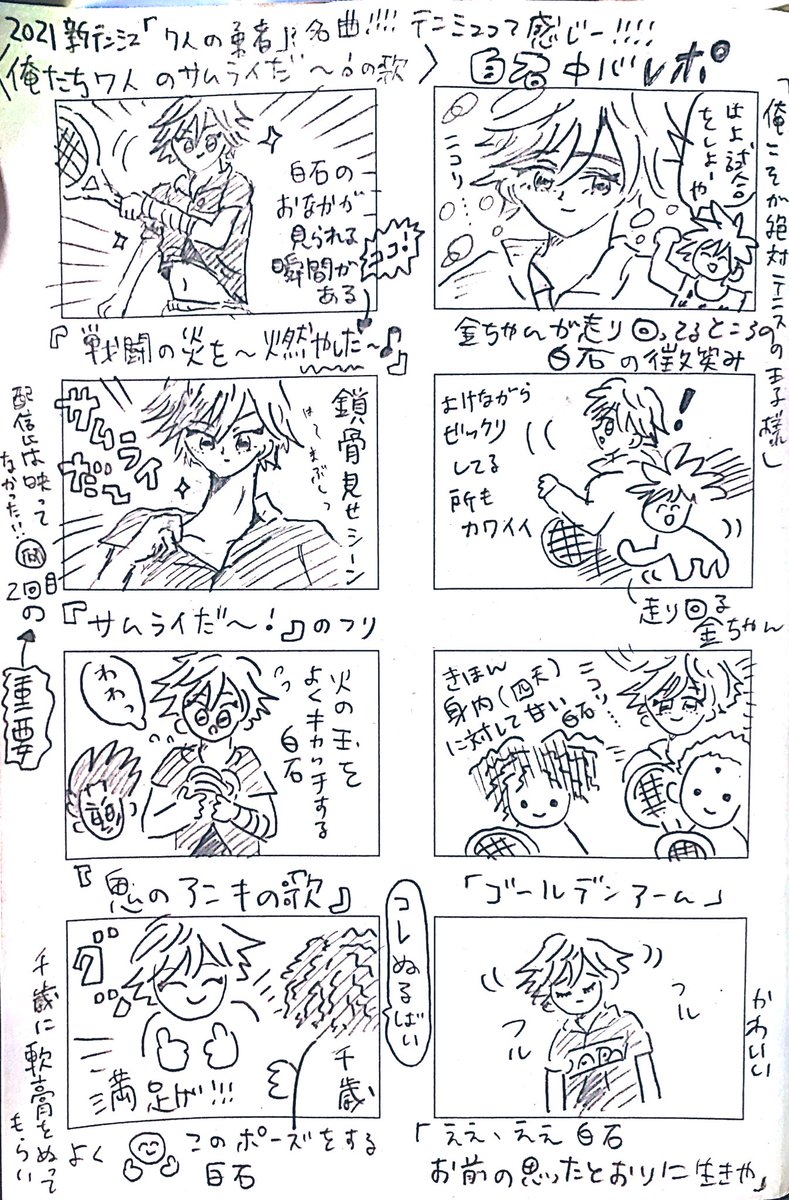 2021新テニミュ「7人の勇者」名曲!!!! テニミュって感じー!!!!
〈俺たち7人のサムライだ〜!の歌〉
白石中心レポ
「俺こそが絶対テニスの王子様」
はよ試合
をしよーや
ニコリ…
金ちゃんが走り回ってるところの
白石の微笑み
白石の
おなかが
見られる
瞬間が
ある
ココ!
『戦闘の炎を〜燃やした〜♪』
よけながら
ビックリ
してる
所も
カワイイ
!
走り回る
金ちゃん
サムライ
だ〜
鎖骨見せシーン
はーまぶしっ
配信には映って
なかった!!
2回目の
重要
『サムライだ〜!』のフリ
きほん
身内(四天)
に対して甘い
白石
ニコリ…
「ゴールデンアーム」
わわっ
火の玉を
よくキャッチする
白石
『鬼のアニキの歌』
フル
フル
かわいい
「ええ、ええ白石
お前の思ったとおりに生きや」
コレぬるばい
グッ
満足げ!!!
千歳
千歳に軟膏をぬって
もらい
よく
このポーズをする
白石